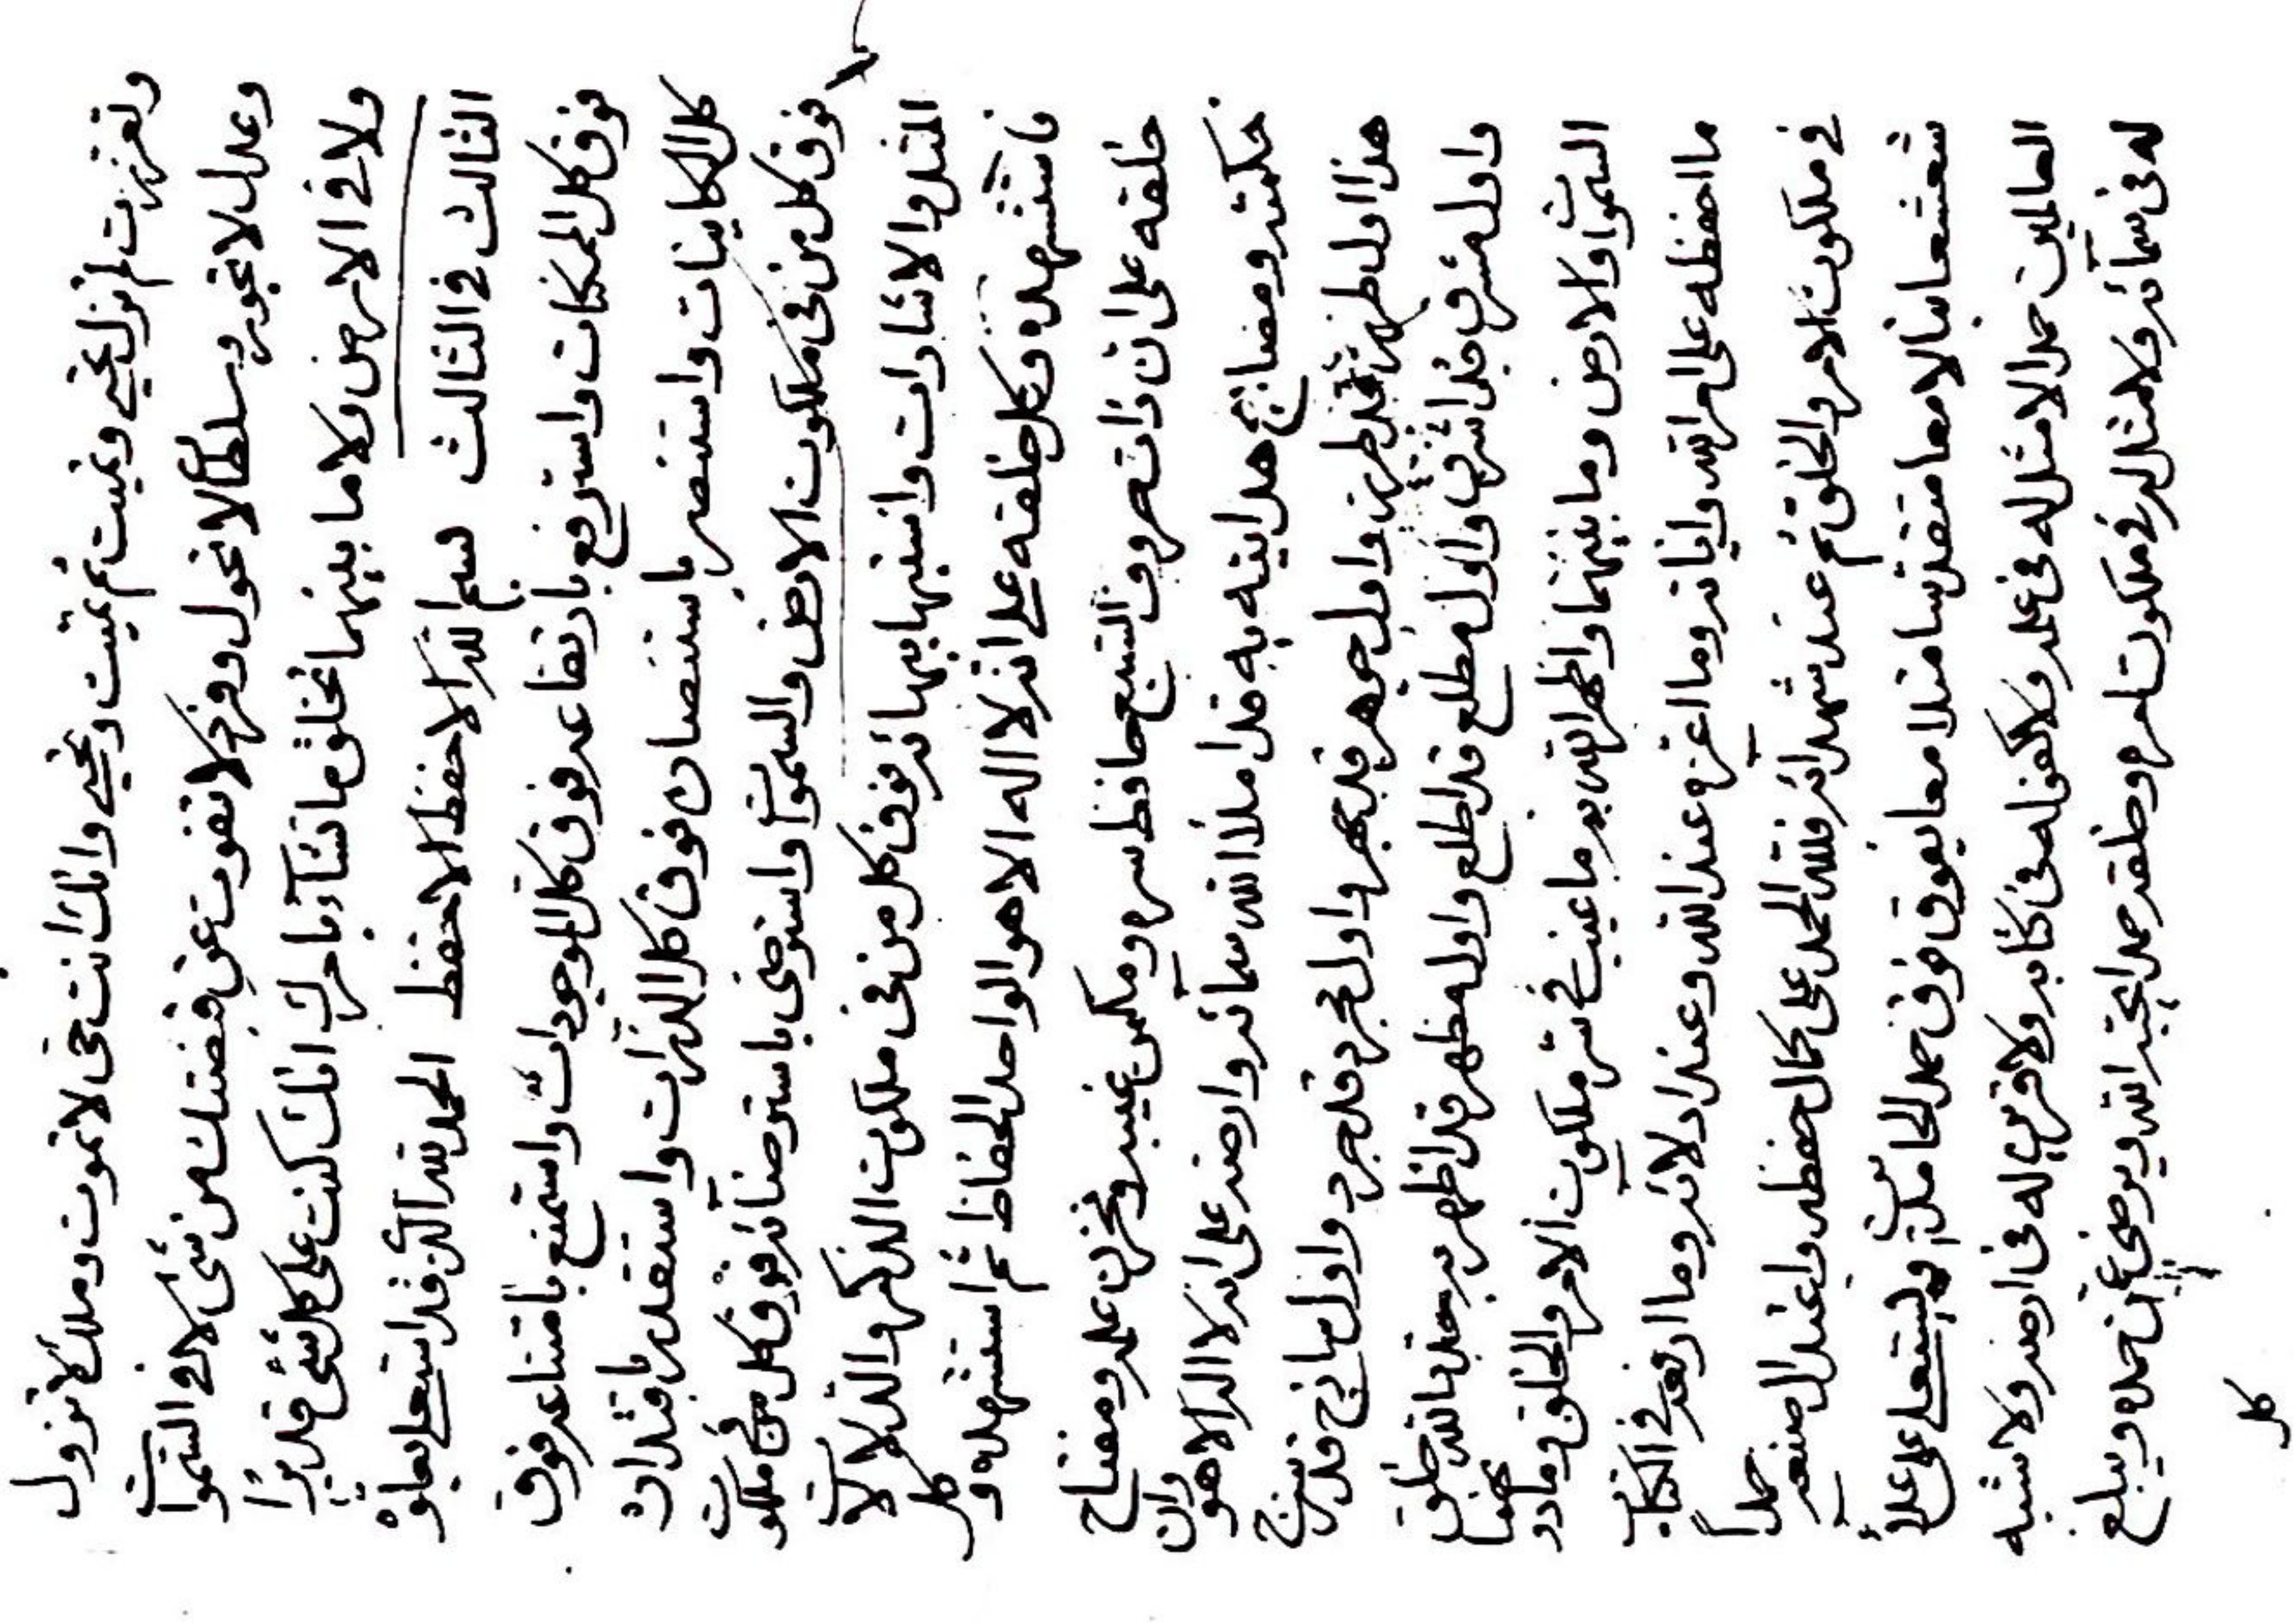 وتعززت لم تزل تحيي وتميت ثم تميت وتحيي وانك انت حي لا تموت وملك لا تزول
وعدل لا تجور وسلطان لا تحول وفرد لا تفوت عن قبضتك من شئ لا في السموات
ولا في الارض ولا ما بينهما تخلق ما تشآء بامرك انك كنت على كل شئ قديرا
الثالث في الثالث بسم الله الاحفظ الاحفظ الحمد لله الذي قد استعلى بعلوه
فوق كل الممكنات واسترفع بارتفاعه فوق كل الموجودات واستمنع بامتناعه فوق
كل الكاينات واستنصر باستنصاره فوق كل الذرات واستقدر باقتداره
فوق كل من في ملكوت الارض والسموات واسترضى باسترضائه فوق كل من في ملكوت
المثل والاشارات واستبهى ببهائه فوق كل من في ملكوت الذكر والدلالات
فاستشهده وكل خلقه على انه لا اله الا هو الواحد الحفاظ ثم استشهده وكل
خلقه على ان ذات حروف السبع حافظ سره ومكمن غيبه ومخزن علمه ومفتاح
حكمته ومصابيح هدايته به قد املأ الله سمائه وارضه على انه لا اله الا هو وان
هذا اول ظهر قد ظهر واول جوهر قد جوهر واول مجرد قد جرد واول ساذج قد سذج
واول مشرق قد اشرق واول مطلع قد اطلع واول مظهر قد اظهر به بعد ما قد خلق
السموات والارض وما بينهما واظهر الله به ما غيب في سر ملكوت الامر والخلق وما دونهما
ما احفظه على امر الله واياته وما اعزه عند الله وعند ادلائه وما ارفعه في الكتاب
في ملكوت الامر والخلق ثم عند شهدائه فلله الحمد على كمال حفظه واعتدال صنعه حمدا
شعشعانيا لامعا متقدسا متلامعا يفوق فوق حمد الحامدين ويستعلى على علا
العالمين حمدا لا مثل له في علمه ولا كفو له في كتابه ولا قرين له في ارضه ولا شبه
له في سمائه ولا مثل له في ملكوت امره وخلقه حمدا يحبه الله ويرضى عن حمده ويبلغ
كل